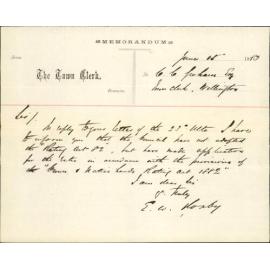 MEMORANDUM
From
The Town Clerk,
June 1883
To C. C. Graham Esq
Sir/
In reply to your letter of the 23rd Ulto I have
to inform you that the Council have not adopted
the "Rating Act 82", but have made application
for the rates in accordance with the provisions of
the "Crown & Native Lands Rating Act 1882"
I am dear Sir
Yr truly
E. W.